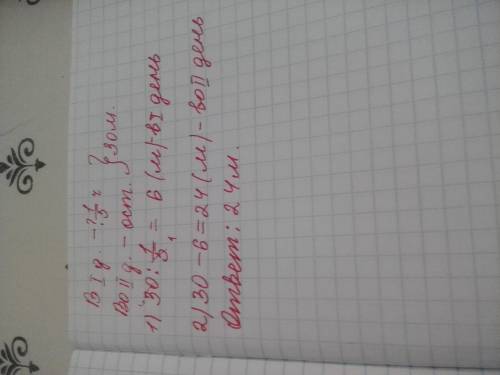 В I д. - ? 1/5 ч } 30 м.
Во II д. - ост.
1) 30 : 1/5 = 6 (м) - в I день
2) 30 - 6 = 24 (м) - во II день
Ответ: 24 м.